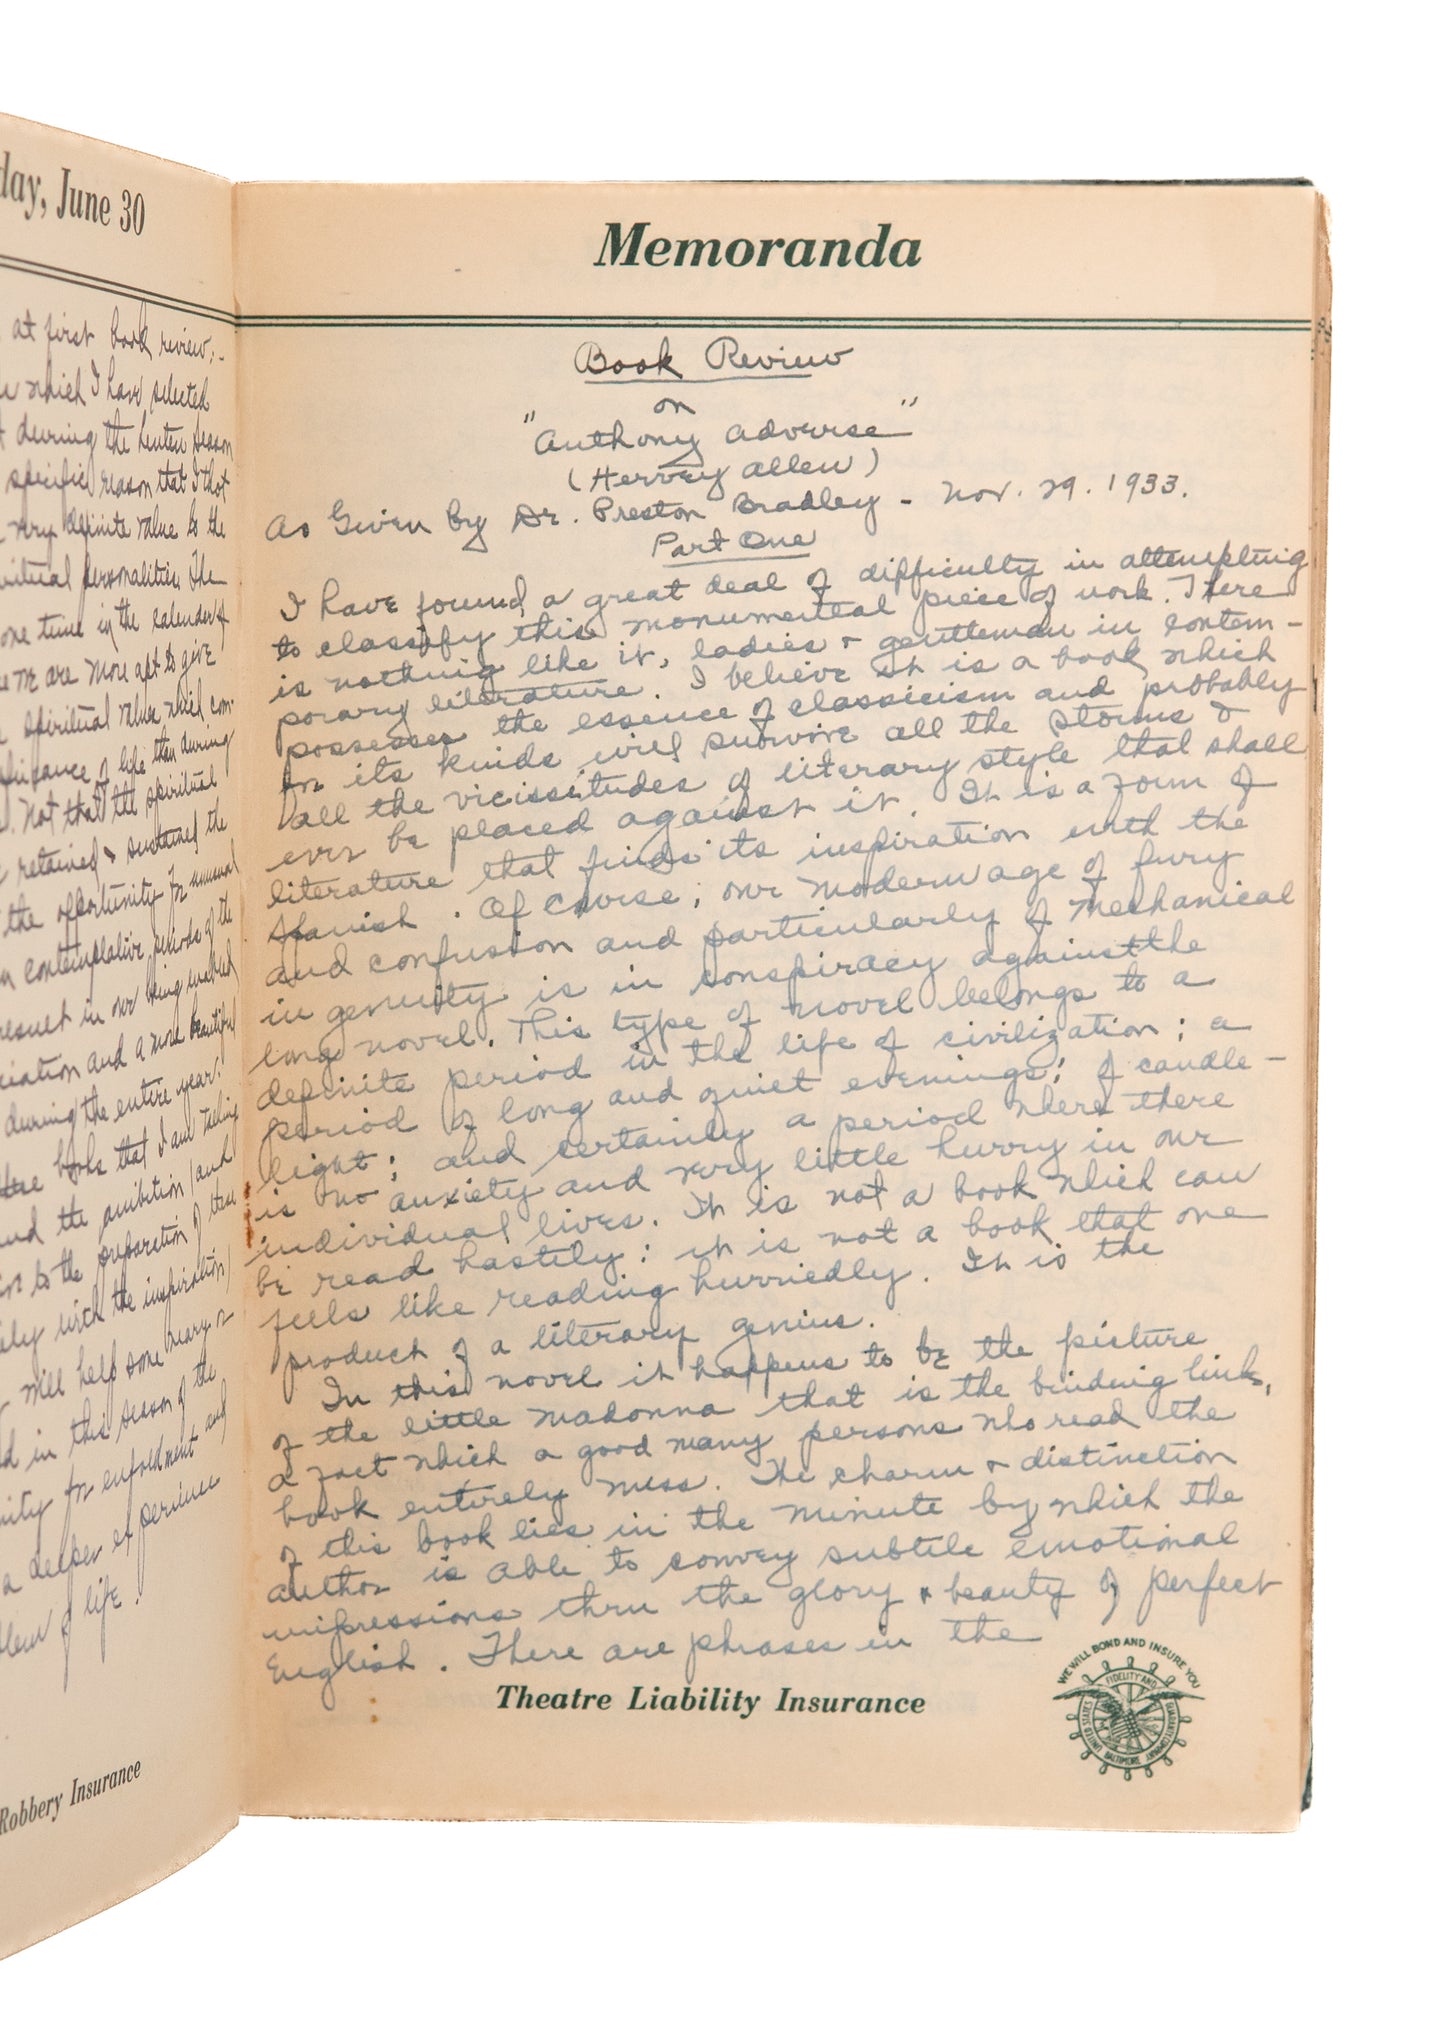 day, June 30
at first book review;-
which I have selected
during the lenten season
specific reason that I that
very definite value to the
personalities. The
one time in the calender of
we are more apt to give
spiritual value which com-
of life than during
. Not that the spiritual
retained & sustained the
the opportunity for unusual
contemplative periods of the
result in our being
and a more beautiful
during the entire year.
books that I am taking
and the ambition (and
to the preparation of these
with the inspiration)
will help some weary
in this season of the
for enfoldment and
a deeper experience
of life.
Robbery Insurance
Memoranda
Book Review
on
"Anthony Adverse"
(Hervey Allen)
As Given by Dr. Preston Bradley - Nov. 29. 1933.
Part One
I have found a great deal of difficulty in attempting
to classify this monumental piece of work. There
is nothing like it, ladies & gentleman in contem-
porary literature. I believe it is a book which
possesses the essence of classicism and probably
in its kinds will survive all the storms &
all the vicissitudes of literary style that shall
ever be placed against it. It is a form of
literature that finds its inspiration with the
Spanish. Of course; our modern age of fury
and confusion and particularly of mechanical
ingenuity is in conspiracy against the
long novel. This type of novel belongs to a
definite period in the life of civilization; a
period of long and quiet evenings; of candle-
light; and certainly a period where there
is no anxiety and very little hurry in our
individual lives. It is not a book which can
be read hastily: it is not a book that one
feels like reading hurriedly. It is the
product of a literary genius.
In this novel it happens to be the picture
of the little madonna that is the binding link,
a fact which a good many persons who read the
book entirely miss. The charm & distinction
of this book lies in the minute by which the
author is able to convey subtile emotional
impressions thru the glory & beauty of perfect
English. There are phrases in the
Theatre Liability Insurance
WE WILL BOND AND INSURE YOU
UNITED STATES FIDELITY AND GUARANTY COMPANY
BALTIMORE